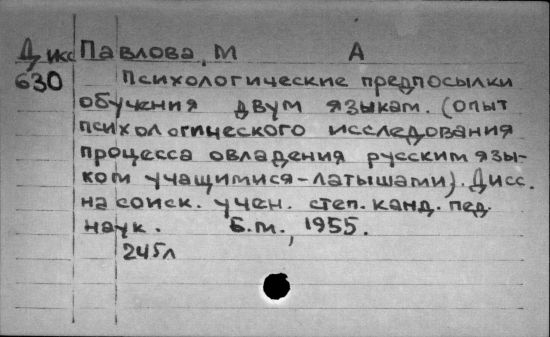 Дисс Павлова, М А
630 Психологические предпосылки
обучения двум языкам. (опыт
психологического исследования
процесса овладения русским язы-
ком учащимися-латышами). Дисс.
на соиск. учен. степ. канд. пед.
наук. Б.м., 1955.
245л